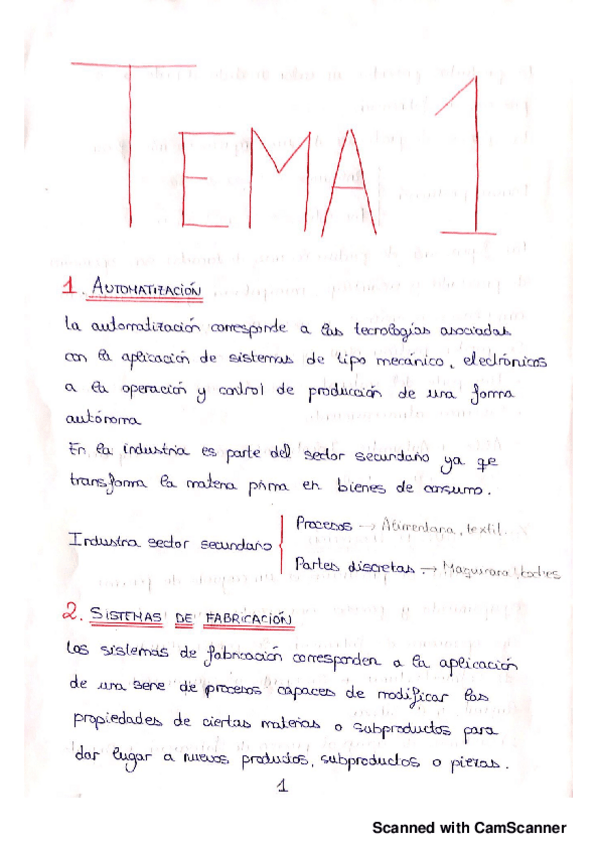 TEMA 1
1. AUTOMATIZACIÓN
la automatización corresponde a las tecnologías asociadas
con la aplicación de sistemas de tipo mecánico, electrónicos
a la operación y control de producción de una forma
autónoma
En la industria es parte del sector secundario ya qe
transforma la materia prima en bienes de consumo.
Industria sector secundario
Procesos → Alimentaria, textil.
Partes discretas → Maquinaria,
2. SISTEMAS DE FABRICACIÓN
Los sistemas de fabricación corresponden a la aplicación
de una serie de procesos capaces de modificar las
propiedades de ciertas materias o subproductos para
dar lugar a nuevos productos, subproductos o piezas.
1
Scanned with CamScanner